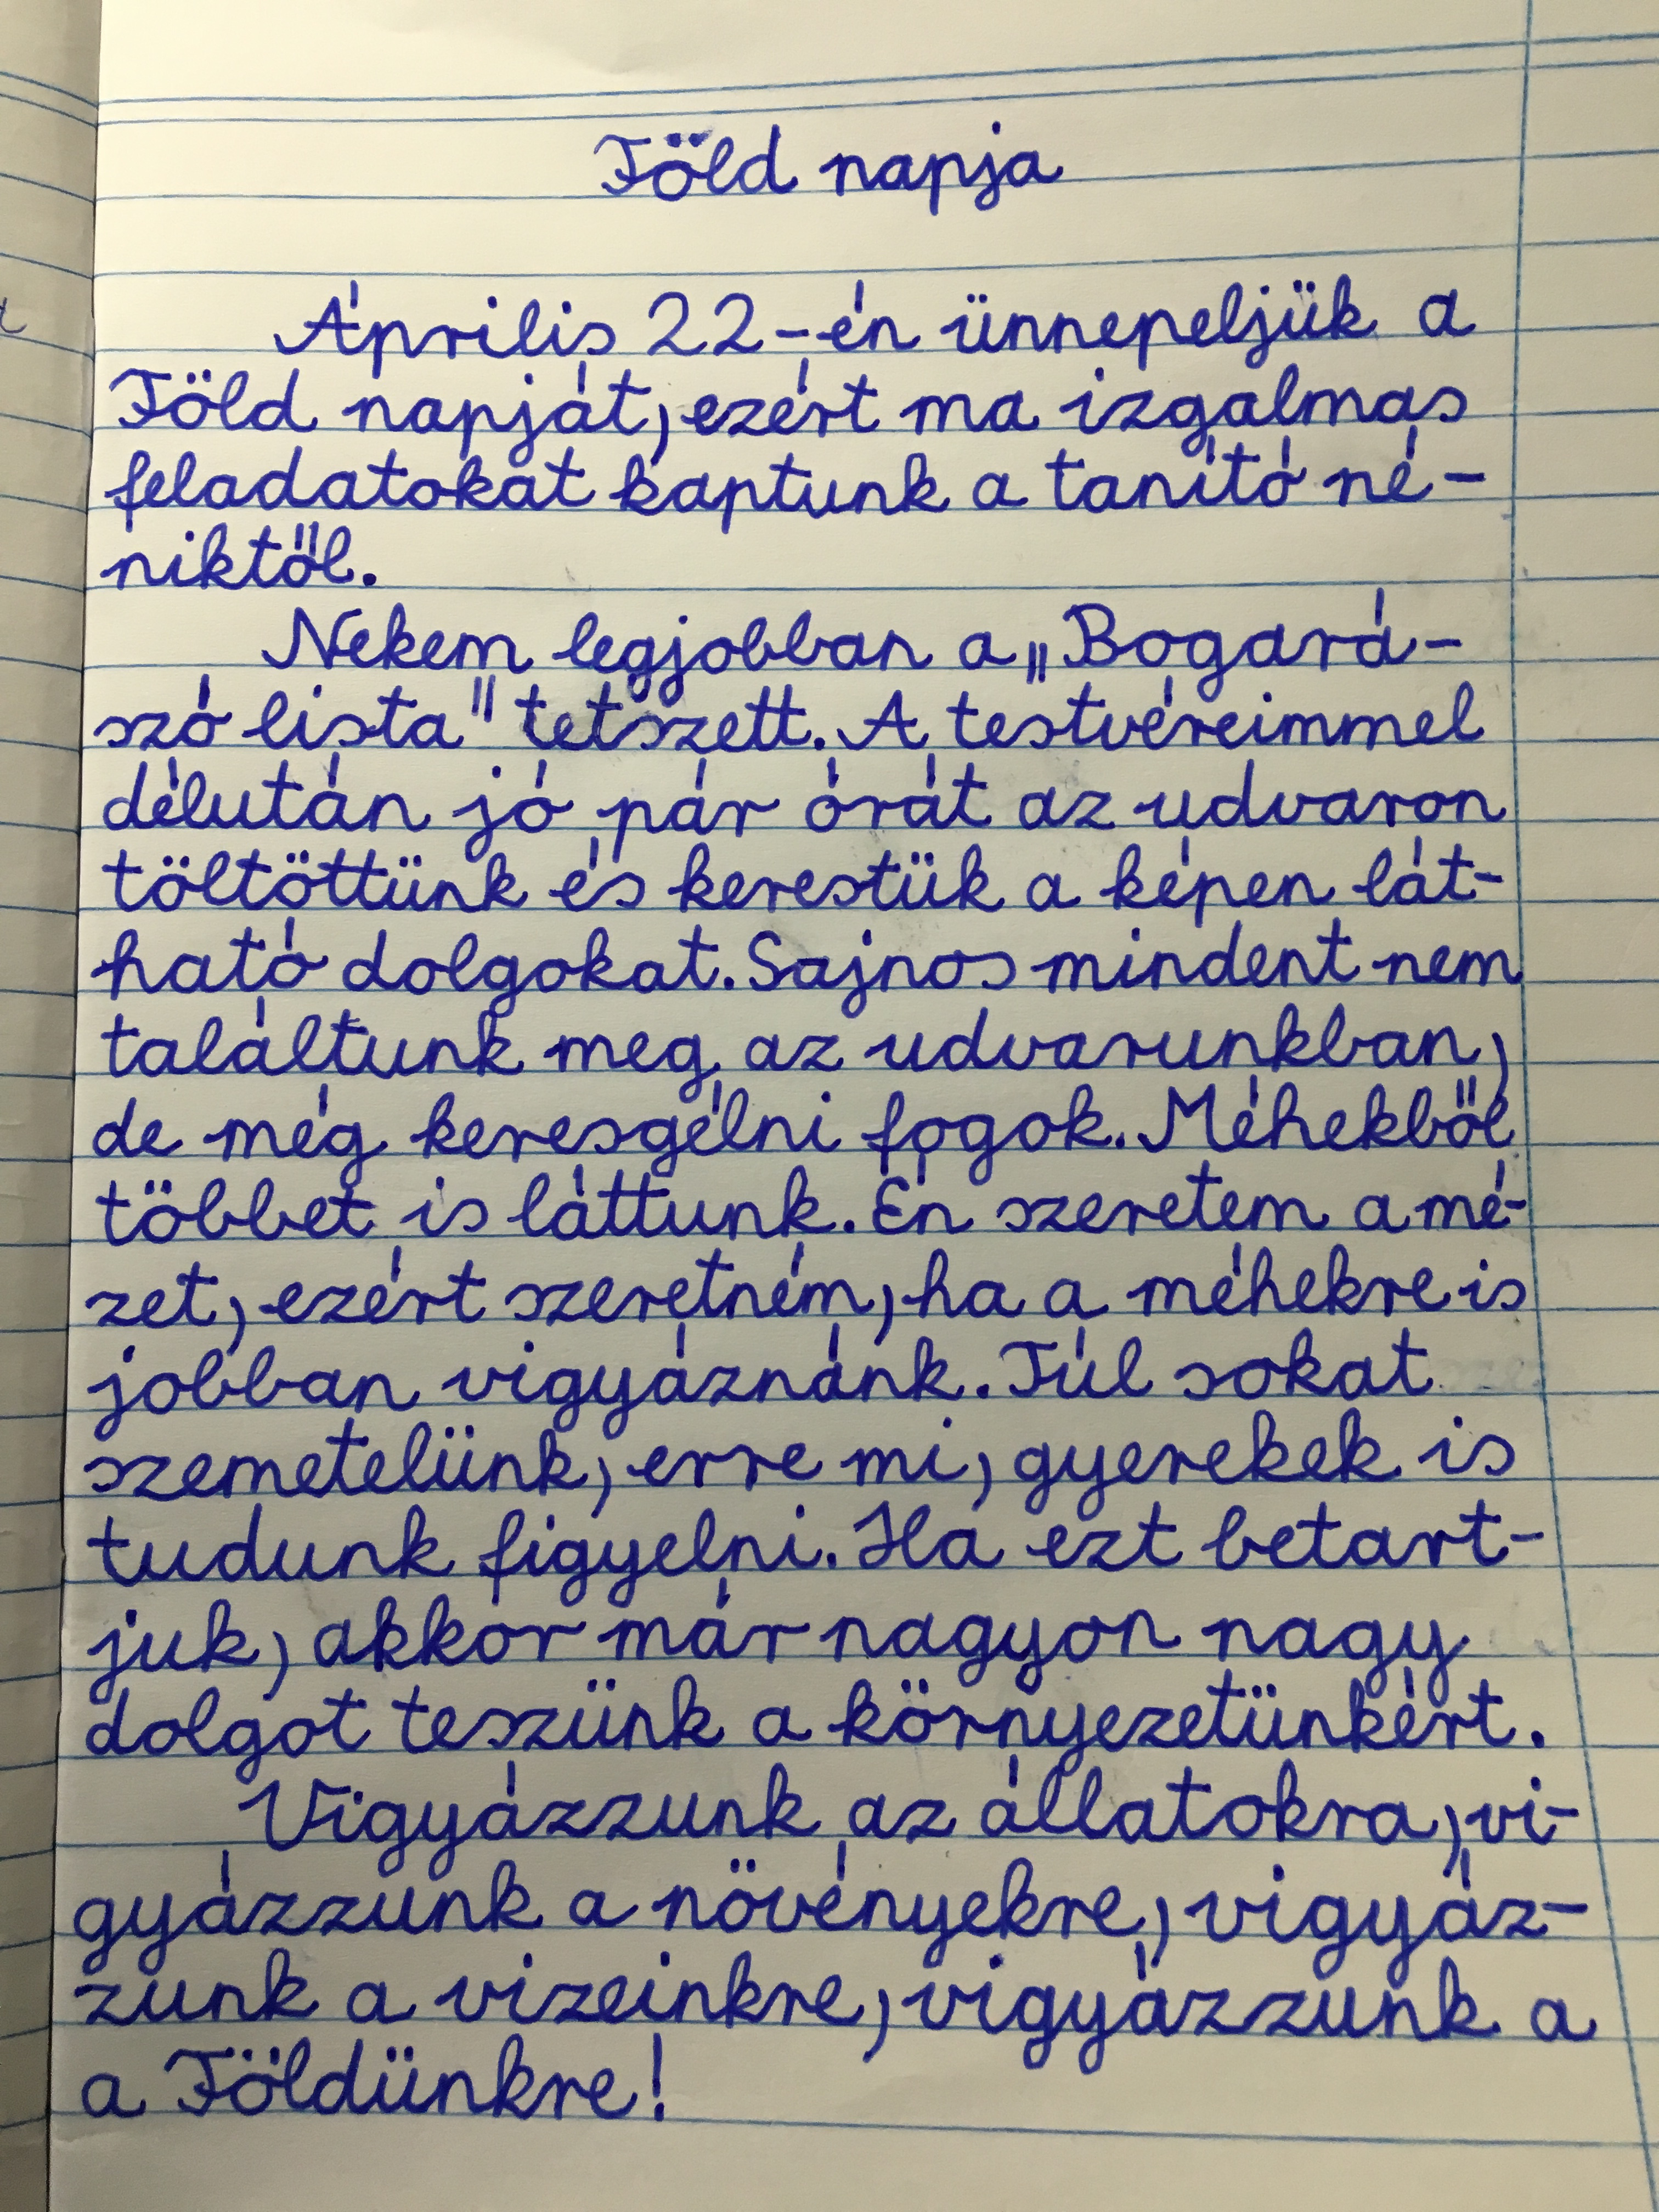 Föld napja
Április 22-én ünnepeljük a
Föld napját, ezért ma izgalmas
feladatokat kaptunk a tanító né-
niktől.
Nekem legjobban a „Bogará-
szó lista" tetszett. A testvéreimmel
délután jó pár órát az udvaron
töltöttünk és kerestük a képen lát-
ható dolgokat. Sajnos mindent nem
találtunk meg az udvarunkban,
de még keresgélni fogok. Méhekből
többet is láttunk. Én szeretem a mé-
zet, ezért szeretném, ha a méhekre is
jobban vigyáznánk. Túl sokat
szemetelünk, erre mi, gyerekek is
tudunk figyelni. Ha ezt betart-
juk, akkor már nagyon nagy
dolgot teszünk a környezetünkért.
Vigyázzunk az állatokra, vi-
gyázzunk a növényekre, vigyáz-
zunk a vizeinkre, vigyázzunk a
a Földünkre!